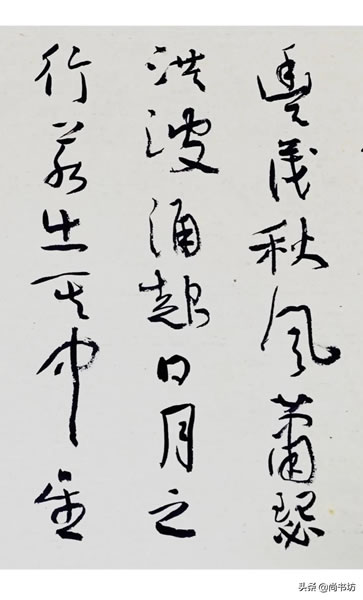 豐茂秋風蕭瑟
洪波涌起日月之
行若出其中星
头条 @尚书坊